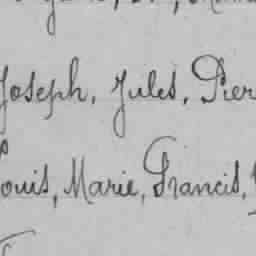 Joseph, Jules, Pier
Louis, Marie, Francis,